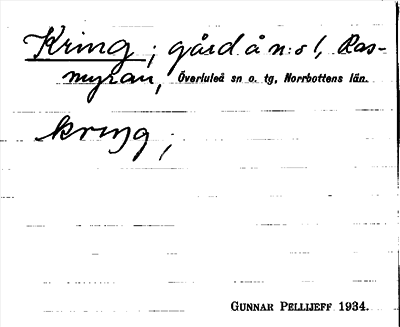 Kring; gård å n:s 1, Ras-
myran, Överluleå sn o. tg, Norrbottens län.
kriŋg;
GUNNAR PELLIJEFF 1934.